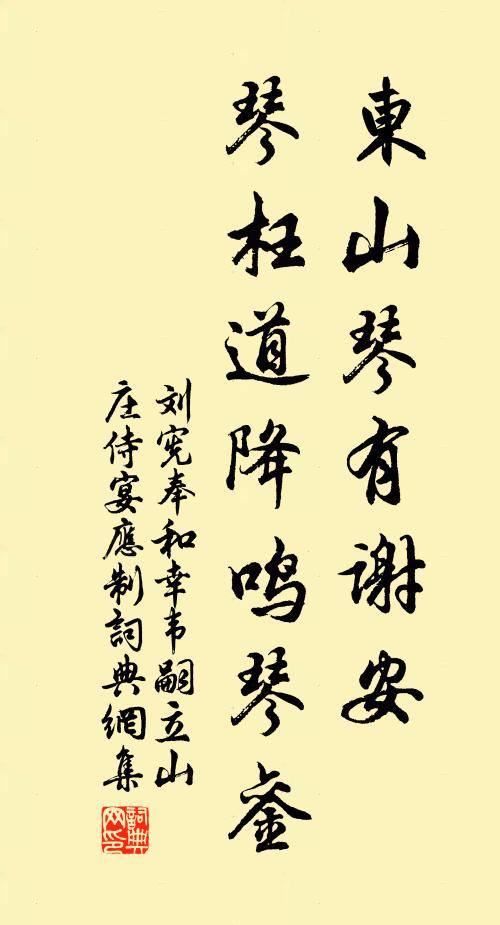 東山琴有谢安
琴枉道降鸣琴銮
刘宪奉和幸韦嗣立山
庄侍宴應制詞典網集
詞典网印